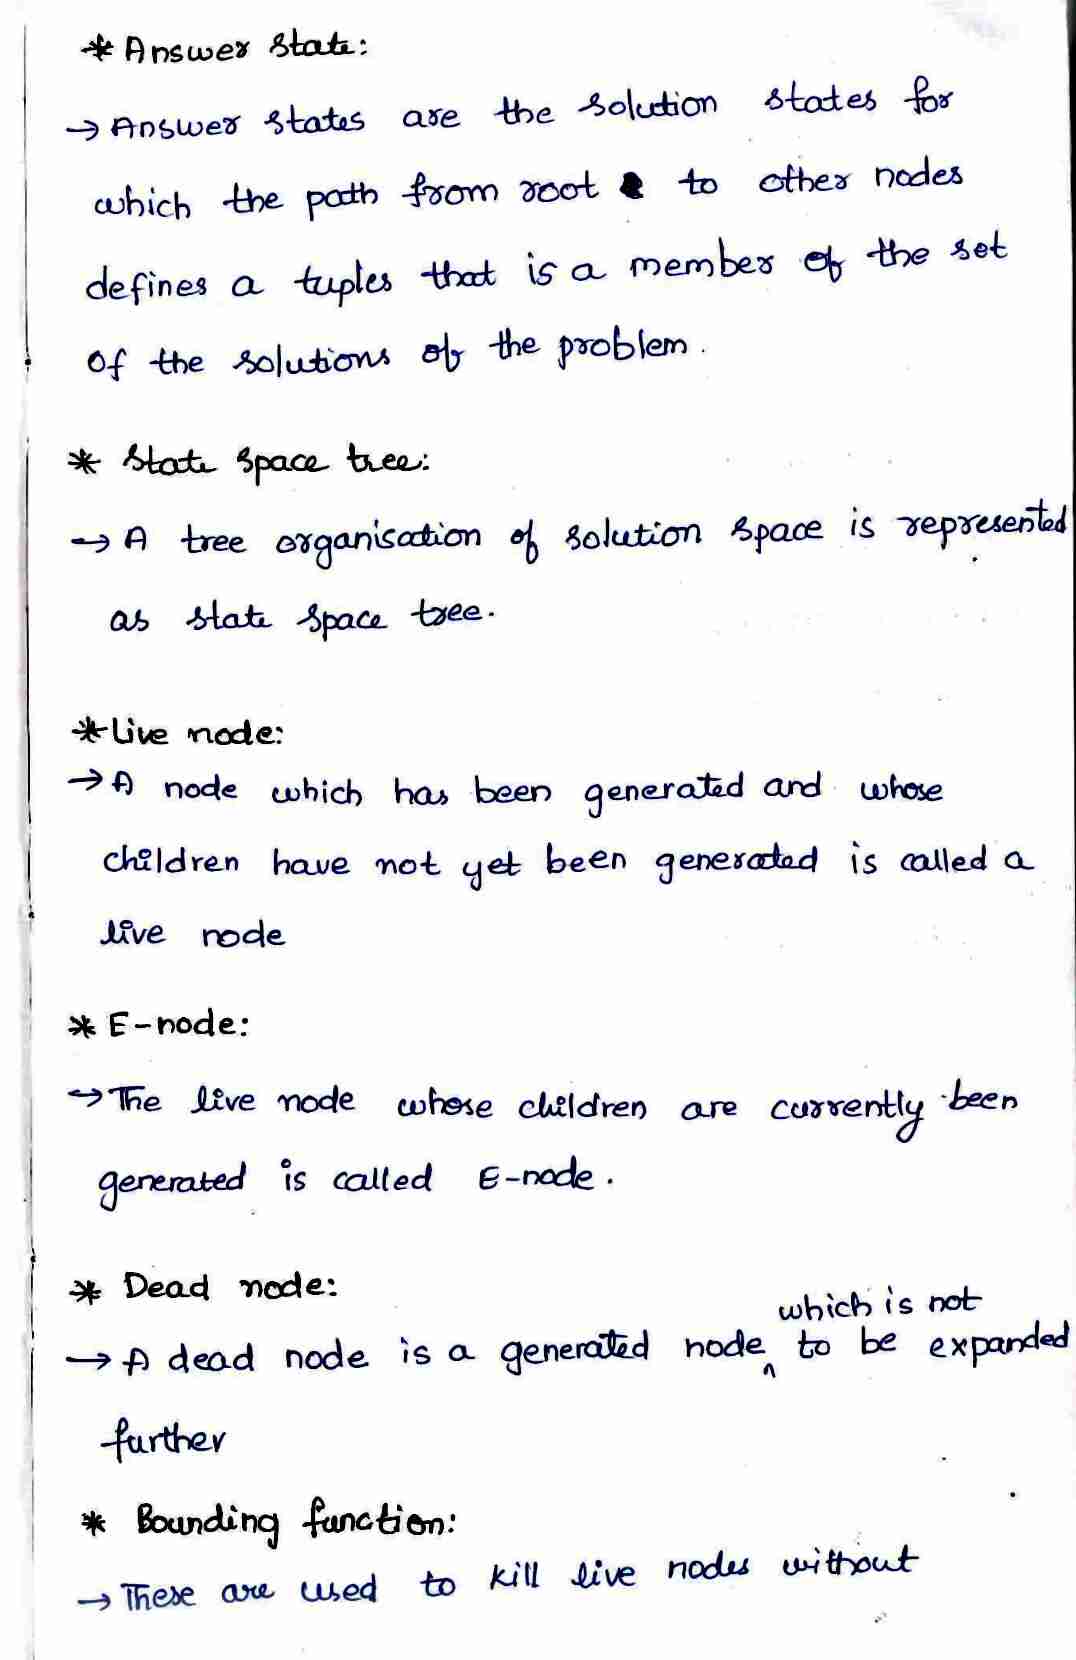 * Answer state:
→ Answer states are the solution states for
which the path from root to other nodes
defines a tuples that is a member of the set
of the solutions of the problem.
* State space tree:
→ A tree organisation of solution space is represented
as state space tree.
* Live node:
→ A node which has been generated and whose
children have not yet been generated is called a
live node
* E-node:
→ The live node whose children are currently been
generated is called E-node.
* Dead node:
which is not
→ A dead node is a generated node ^ to be expanded
further
* Bounding function:
→ These are used to kill live nodes without